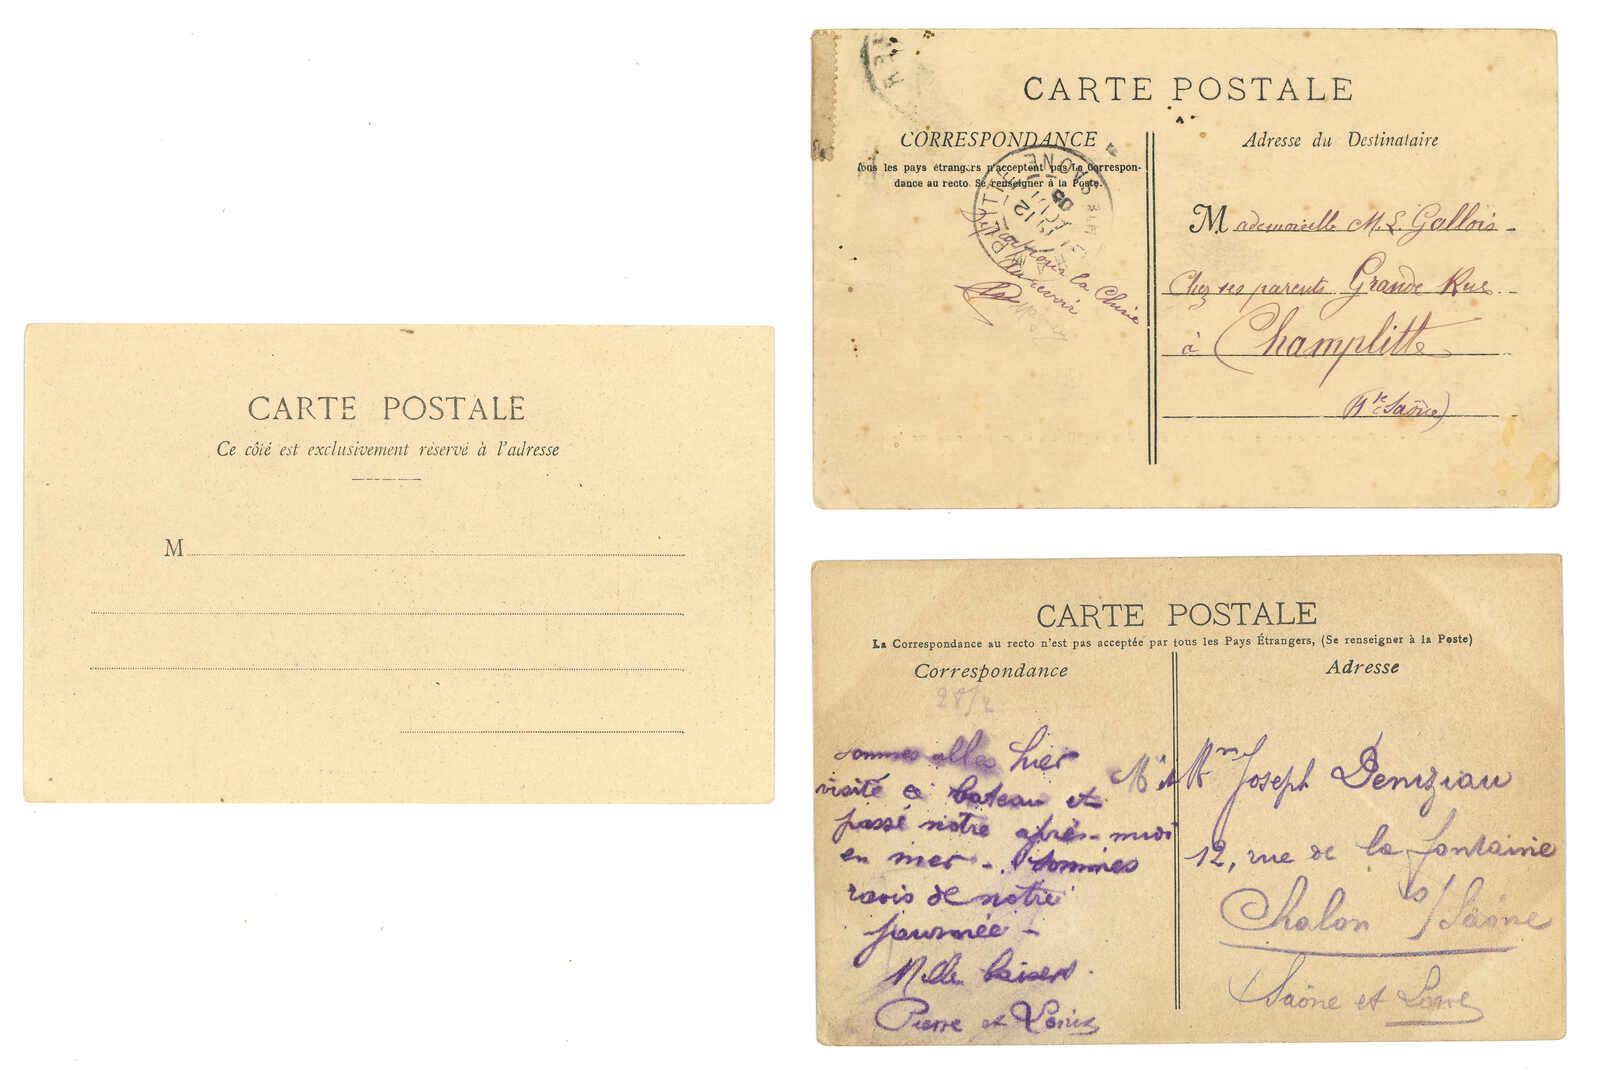 CARTE POSTALE
Ce côté est exclusivement réservé à l'adresse
M
CARTE POSTALE
CORRESPONDANCE
Tous les pays étrangers n'acceptent pas la Correspon-
dance au recto. Se renseigner à la Poste.
CHAMPLITTE
HTE SAONE
12
05
la Chine
Au revoir
Adresse du Destinataire
Mademoiselle M. L. Gallois
Chez ses parents Grande Rue
à Champlitte
(Hte Saône)
CARTE POSTALE
La Correspondance au recto n'est pas acceptée par tous les Pays Étrangers, (Se renseigner à la Poste)
Correspondance
28/2
sommes allés hier
visité e bateau et
passé notre après-midi
en mer - sommes
ravis de notre
journée -
Mille baisers.
Pierre et Louis
Adresse
Mr et Mme Joseph Deniziau
12, rue de la fontaine
Chalon s/Saône
(Saône et Loire